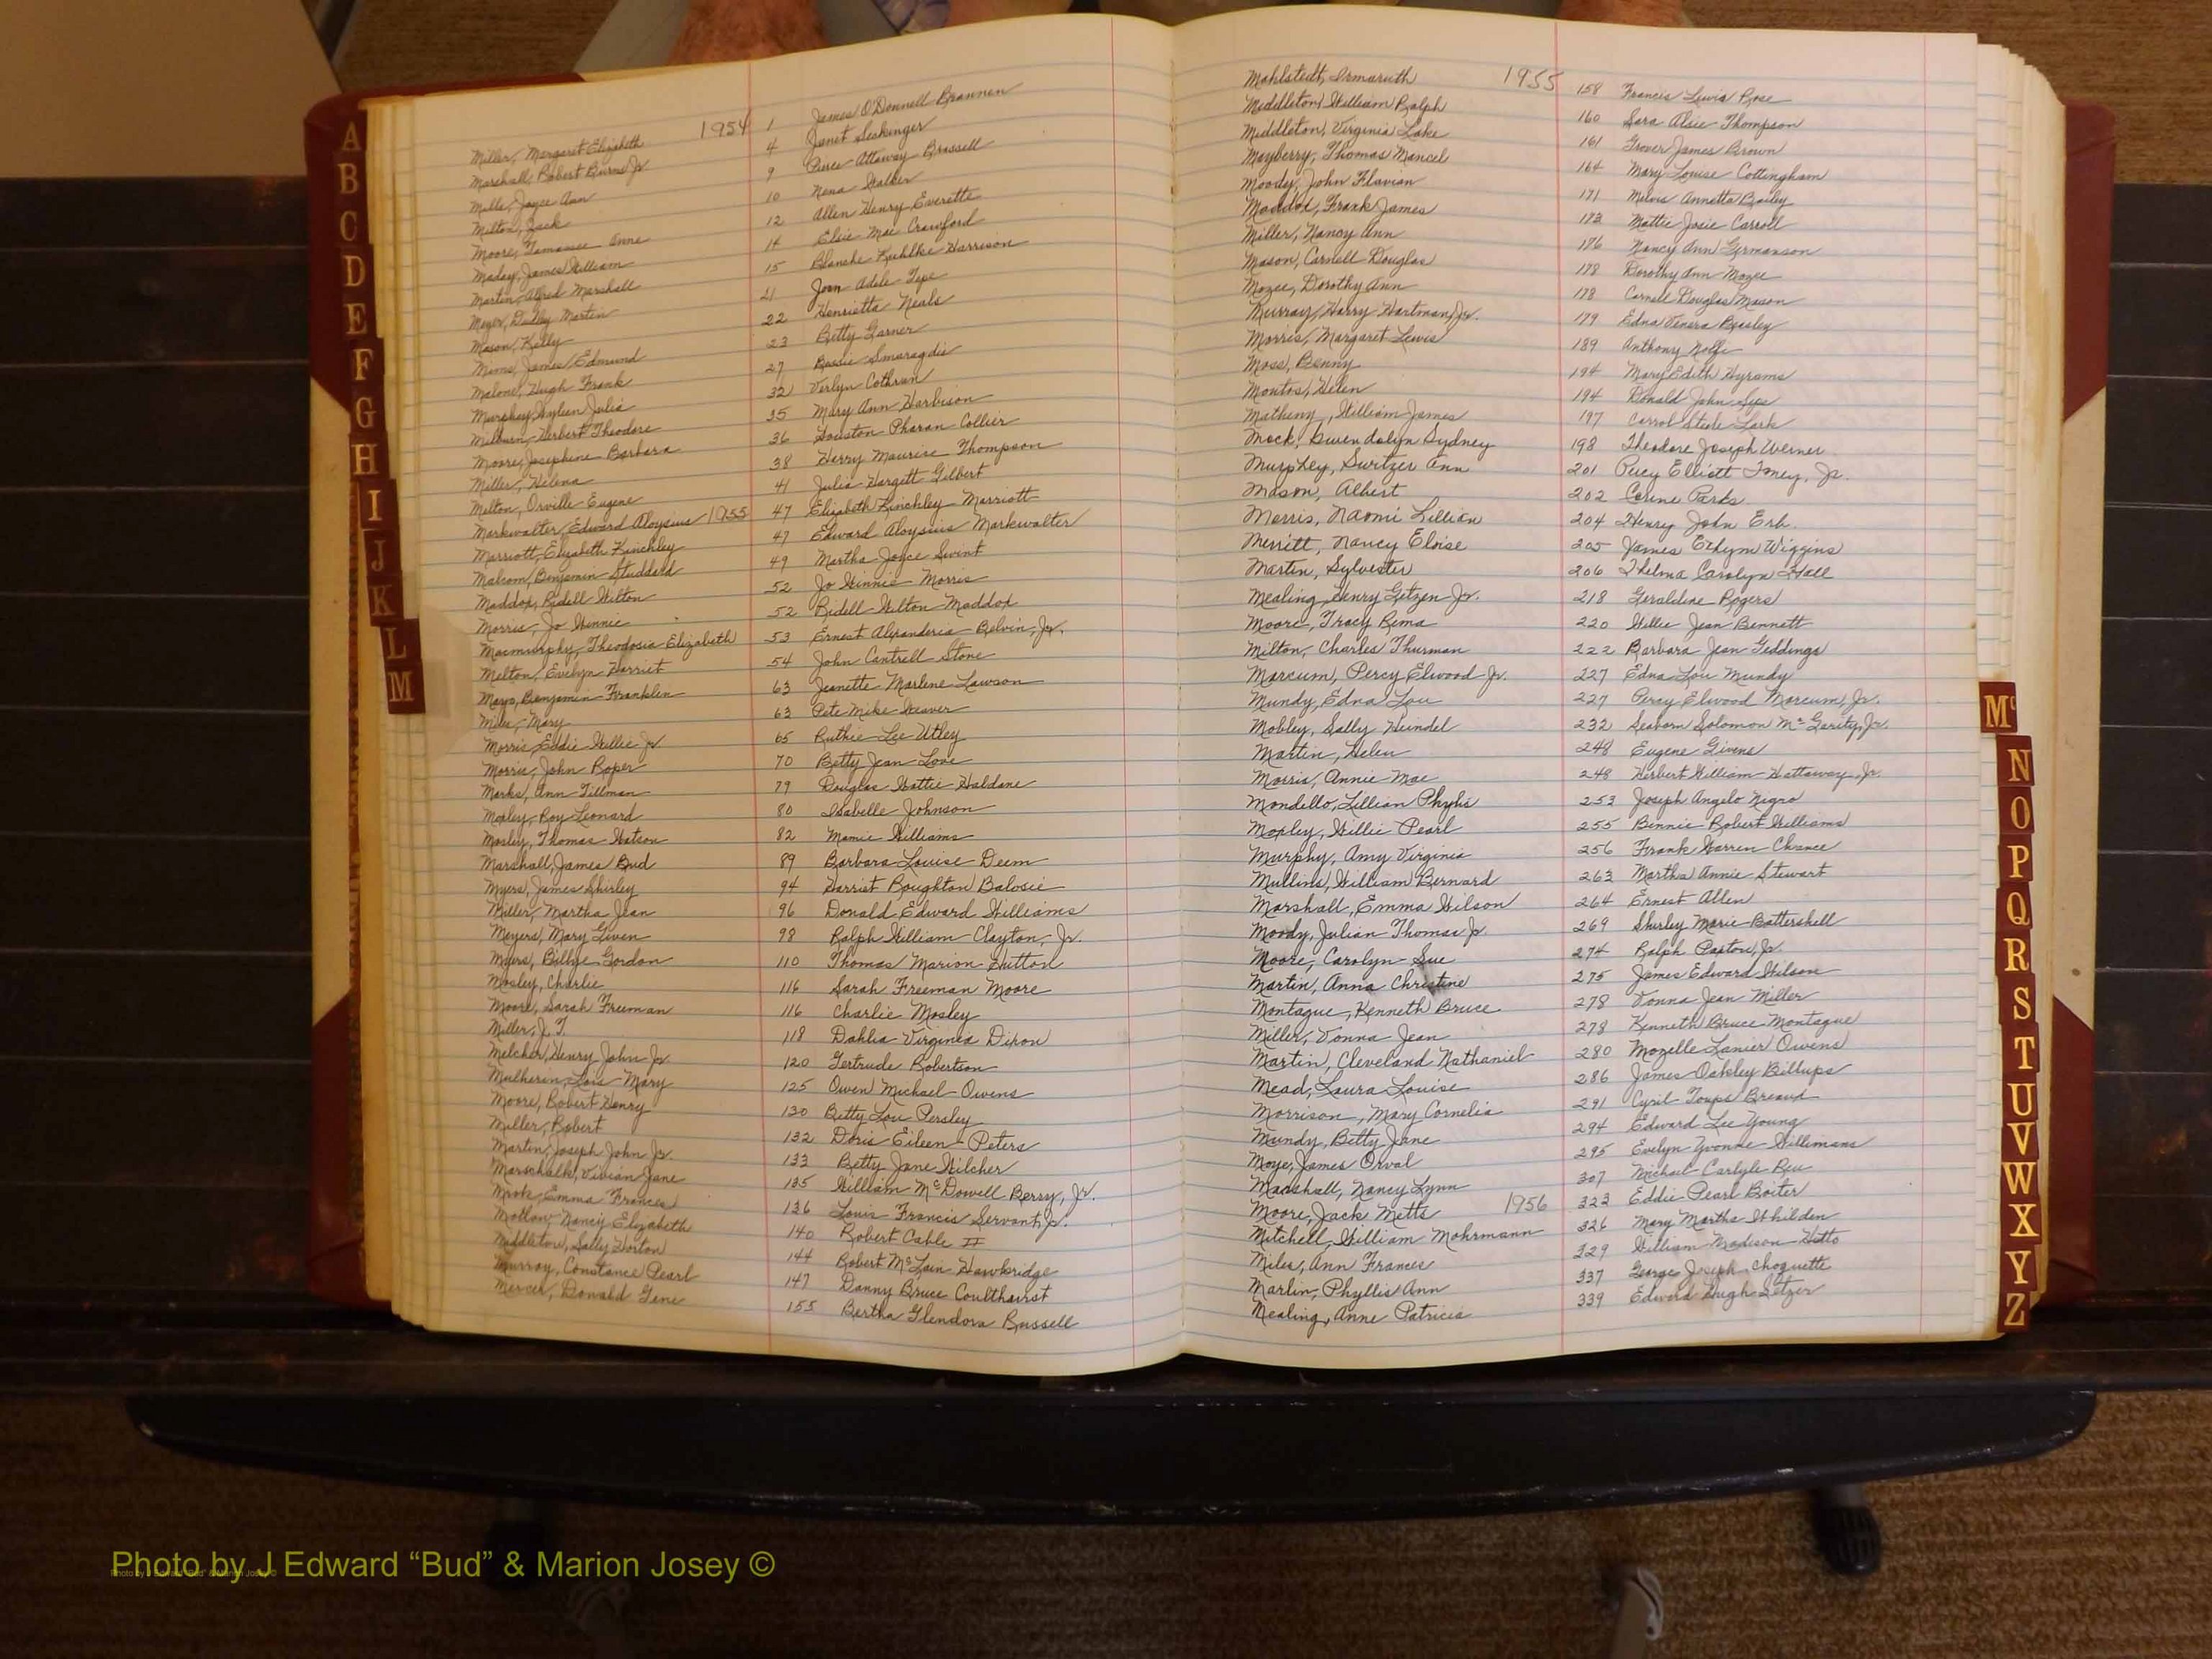 Miller, Margaret Elizabeth 1954 1 James O'Donnell Brannen
Marshall, Robert Burns Jr. 4 Janet Seskinger
Mills, Joyce Ann 9 Pierce Attaway Brassell
Melton, Zack 10 Nena Walker
Moore, Tamassee Anne 12 Allen Henry Everette
Maday, James William 14 Elsie Mae Crawford
Martin, Alfred Marshall 15 Blanche Kuhlke Harrison
Meyer, Dudley Martin 21 Joan Adele Tepe
Mason, Kelly 22 Henrietta Neals
Mims, James Edmund 23 Betty Garner
Malone, Hugh Frank 27 Bessie Smaragdis
Murphey, Hylien Julia 32 Verlyn Cothran
Milburn, Herbert Theodore 35 Mary Ann Harbison
Moore, Josephine Barbara 36 Houston Pharan Collier
Miller, Helena 38 Harry Maurice Thompson
Melton, Orville Eugene 41 Julia Hargett Gilbert
Markwalter, Edward Aloysius 1955 47 Elizabeth Kinchley Marriott
Marriott, Elizabeth Kinchley 47 Edward Aloysius Markwalter
Malcom, Benjamin Studdard 49 Martha Joyce Swint
Maddox, Ridell Wilton 52 Jo Winnie Morris
Morris, Jo Winnie 52 Ridell Wilton Maddox
Macmurphy, Theodosia Elizabeth 53 Ernest Alexanderia Belvin, Jr.
Melton, Evelyn Harriet 54 John Cantrell Stone
Mays, Benjamin Franklin 63 Jeanette Marlene Lawson
Mary 63 Pete Mike Weaver
Morris Eddie Willie Jr. 65 Ruthie Lee Utley
Morris, John Roper 70 Betty Jean Love
Marks, Ann Tillman 79 Douglas Wattie Haldane
Mopley, Roy Leonard 80 Isabelle Johnson
Mosley, Thomas Watson 82 Mamie Williams
Marshall, James Bud 89 Barbara Louise Deem
Myers, James Shirley 94 Harriet Boughton Balosie
Miller, Martha Jean 96 Donald Edward Williams
Meyers, Mary Given 98 Ralph William Clayton, Jr.
Myers, Billye Gordon 110 Thomas Marion Hutton
Mosley, Charlie 116 Sarah Freeman Moore
Moore, Sarah Freeman 116 Charlie Mosley
Miller, J. T. 118 Dahlia Virginia Dixon
Melcher, Henry John Jr. 120 Gertrude Robertson
Mulherin, Lois Mary 125 Owen Michael Owens
Moore, Robert Henry 130 Betty Lou Persley
Miller, Robert 132 Doris Eileen Peters
Martin, Joseph John Jr. 133 Betty Jane Wilcher
Marschalk, Vivian Jane 135 William McDowell Berry, Jr.
Emma Frances 136 Louis Francis Servant, Jr.
Motlow, Nancy Elizabeth 140 Robert Cable II
Middleton, Sally Horton 144 Robert McLain Hawbridge
Murray, Constance Pearl 147 Danny Bruce Coulthurst
Mercer, Donald Gene 155 Bertha Glendora Russell
Mahlstedt, Irmaruth 1955 158 Francis Lewis Rose
Middleton, William Ralph 160 Sara Alsie Thompson
Middleton, Virginia Lake 161 Grover James Brown
Mayberry, Thomas Mancel 164 Mary Louise Cottingham
Moody, John Flavian 171 Melvis Annetta Bailey
Maddox, Frank James 173 Mattie Josie Carroll
Miller, Nancy Ann 176 Nancy Ann Germanson
Mason, Carnell Douglas 178 Dorothy Ann Mozee
Mozee, Dorothy Ann 178 Carnell Douglas Mason
Murray, Harry Hartman, Jr. 179 Edna Venera Beasley
Morris, Margaret Lewis 189 Anthony Nolfi
Moss, Benny 194 Mary Edith Hyrams
Montos, Helen 194 Donald John
Matheny, William James 197 Carrol Steele Lark
Mock, Gwendolyn Sydney 198 Theodore Joseph Werner
Murphey, Switzer Ann 201 Percy Elliott Toney, Jr.
Mason, Albert 202 Corine Parks
Morris, Naomi Lillian 204 Henry John Erb.
Merritt, Nancy Eloise 205 James Wiggins
Martin, Sylvester 206 Thelma Carolyn Hall
Mealing, Henry Getzen Jr. 218 Geraldine Rogers
Moore, Tracy Rema 220 Willie Jean Bennett
Milton, Charles Thurman 222 Barbara Jean Geddings
Marcum, Percy Elwood Jr. 227 Edna Lou Mundy
Mundy, Edna Lou 227 Percy Elwood Marcum, Jr.
Mobley, Sally Heindel 232 Seaborn Solomon McGarity, Jr.
Martin, Helen 248 Eugene Givens
Morris, Annie Mae 248 Herbert William Hattaway, Jr.
Mondello, Lillian Phylis 253 Joseph Angelo Nigro
Mopley, Willie Pearl 255 Bennie Robert Williams
Murphy, Amy Virginia 256 Frank Warren Chance
Mullins, William Bernard 263 Martha Annie Stewart
Marshall, Emma Wilson 264 Ernest Allen
Moody, Julian Thomas Jr. 269 Shirley Marie Battershell
Moore, Carolyn Sue 274 Ralph Paxton, Jr.
Martin, Anna Christine 275 James Edward Wilson
Montague, Kenneth Bruce 278 Vonna Jean Miller
Miller, Vonna Jean 278 Kenneth Bruce Montague
Martin, Cleveland Nathaniel 280 Mozelle Lanier Owens
Mead, Laura Louise 286 James Oakley Billups
Morrison, Mary Cornelia 291 Cyril Toups Breaud
Mundy, Betty Jane 294 Edward Lee Young
Moye, James Orval 295 Evelyn Yvonne Willimans
Marshall, Nancy Lynn 307 Michael Carlyle Reu
Moore, Jack Metts 1956 323 Eddie Pearl Boiter
Mitchell, William Mohrmann 326 Mary Martha Whilden
Miles, Ann Frances 329 William Madison Hitto
Marlin, Phyllis Ann 337 George Joseph Choquette
Mealing, Anne Patricia 339 Edward Hugh Setzer
A
B
C
D
E
F
G
H
I
J
K
L
M
Mc
N
O
P
Q
R
S
T
U
V
W
X
Y
Z
Photo by J Edward “Bud” & Marion Josey ©
Photo by J Edward “Bud” & Marion Josey ©